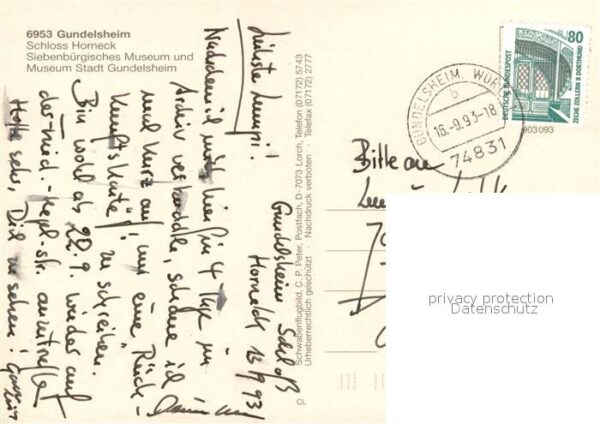 6953 Gundelsheim
Schloss Horneck
Siebenbürgisches Museum und
Museum Stadt Gundelsheim
Gundelsheim Schloß
Horneck 13/9/93
Nachdem ich mich hier für 4 Tage im
Archiv verbuddle, schaue ich
mal kurz auf, um eine Rück-
kunftskarte! zu schreiben.
Bin wohl ab 22.9. wieder auf
Hoffe sehr, Dich zu sehen!
Schwabenflugbild, C. P. Peter, Postfach, D-7073 Lorch, Telefon (07172) 5743
Urheberrechtlich geschützt · Nachdruck verboten · Telefax (07172) 2777
CL
GUNDELSHEIM, WÜRTT
b
16.-9.93-18
74831
80
DEUTSCHE BUNDESPOST
ZECHE ZOLLERN II DORTMUND
903093
Bitte an
privacy protection
Datenschutz